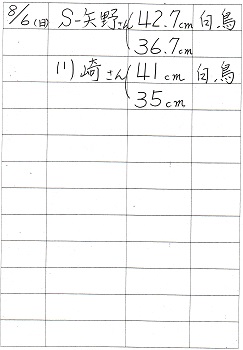 8/6(日) S-矢野さん 42.7cm 白鳥
36.7cm
川崎さん 41cm 白鳥
35cm